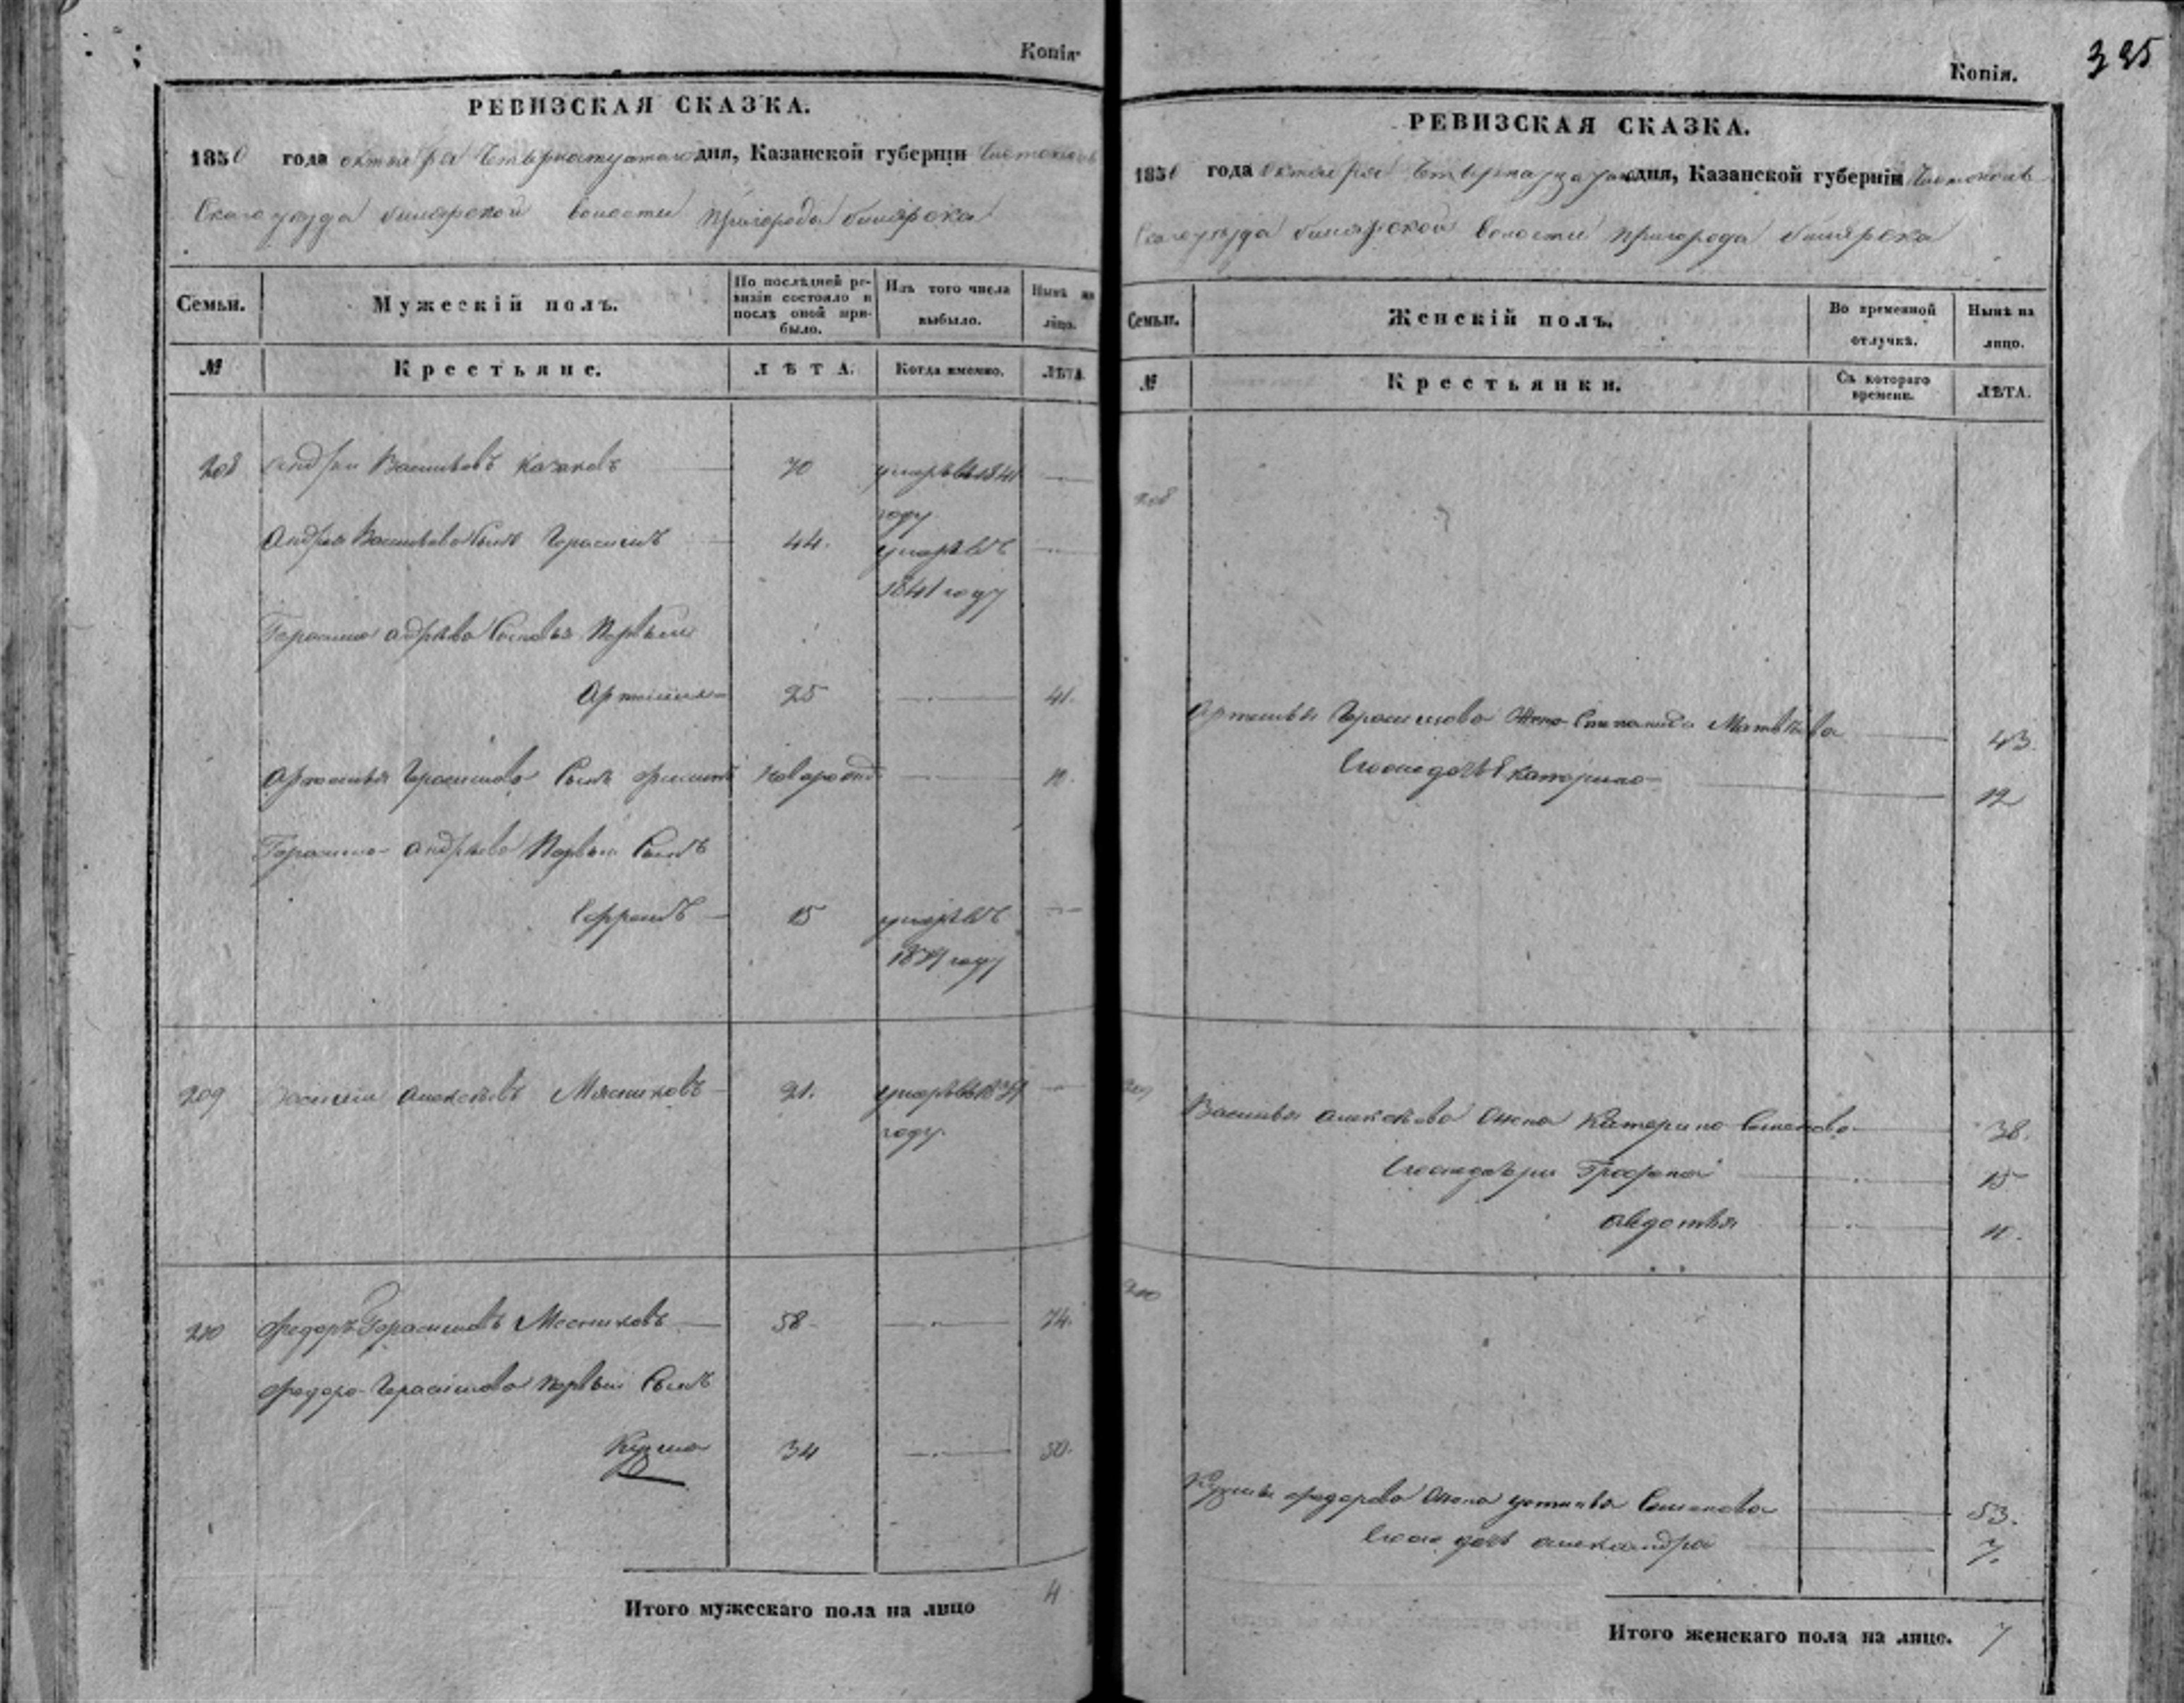 Копія
РЕВИЗСКАЯ СКАЗКА.
1850 года октября Четырнатцатаго дня, Казанской губерніи Чистополь
Скаго уезда билярской волости пригорода билярска
Семьи.
Мужескій полъ.
По послѣдней ре-
визіи состояло и
послѣ оной при-
было.
Изъ того числа
выбыло.
Нынѣ на
лицо.
№
Крестьяне.
ЛѢТА.
Когда именно.
ЛѢТА.
208 Андреи Васильевъ Казаковъ 70 умеръ въ 1841
году
Андрея Васильева Сынъ Герасимъ 44. умеръ въ
1841 году
Герасима Андрѣева Сыновья Первыи
Артемии 25 41.
Артемья Герасимова Сынъ 10.
Герасима Андрѣева Первыи Сынъ
Ефремъ 15 умеръ въ
году
209 Василии Алексѣевъ Мясниковъ 21. умеръ въ
году.
210 Федоръ Герасимовъ Месниковъ 58 74.
Федора Герасимова Первыи Сынъ
Кузма 34 50.
Итого мужескаго пола на лицо 4
Копія.
325
РЕВИЗСКАЯ СКАЗКА.
1850 года Октября Четырнатцатаго дня, Казанской губерніи Чистополь
Скаго уезда билярской волости пригорода билярска
Семьи.
Женскій полъ.
Во временной
отлучкѣ.
Нынѣ на
лицо.
№
Крестьянки.
Съ котораго
времени.
ЛѢТА.
208
Артемья Герасимова Жена Степанида Матвѣева 43.
Екатерина 12
209
Василья Алексѣева Жена Катерина Семенова 38.
15
Авдотья 11.
210
Кузмы Федорова Жена Устинья Семенова 53.
дочь Александра 7.
Итого женскаго пола на лицо. 7